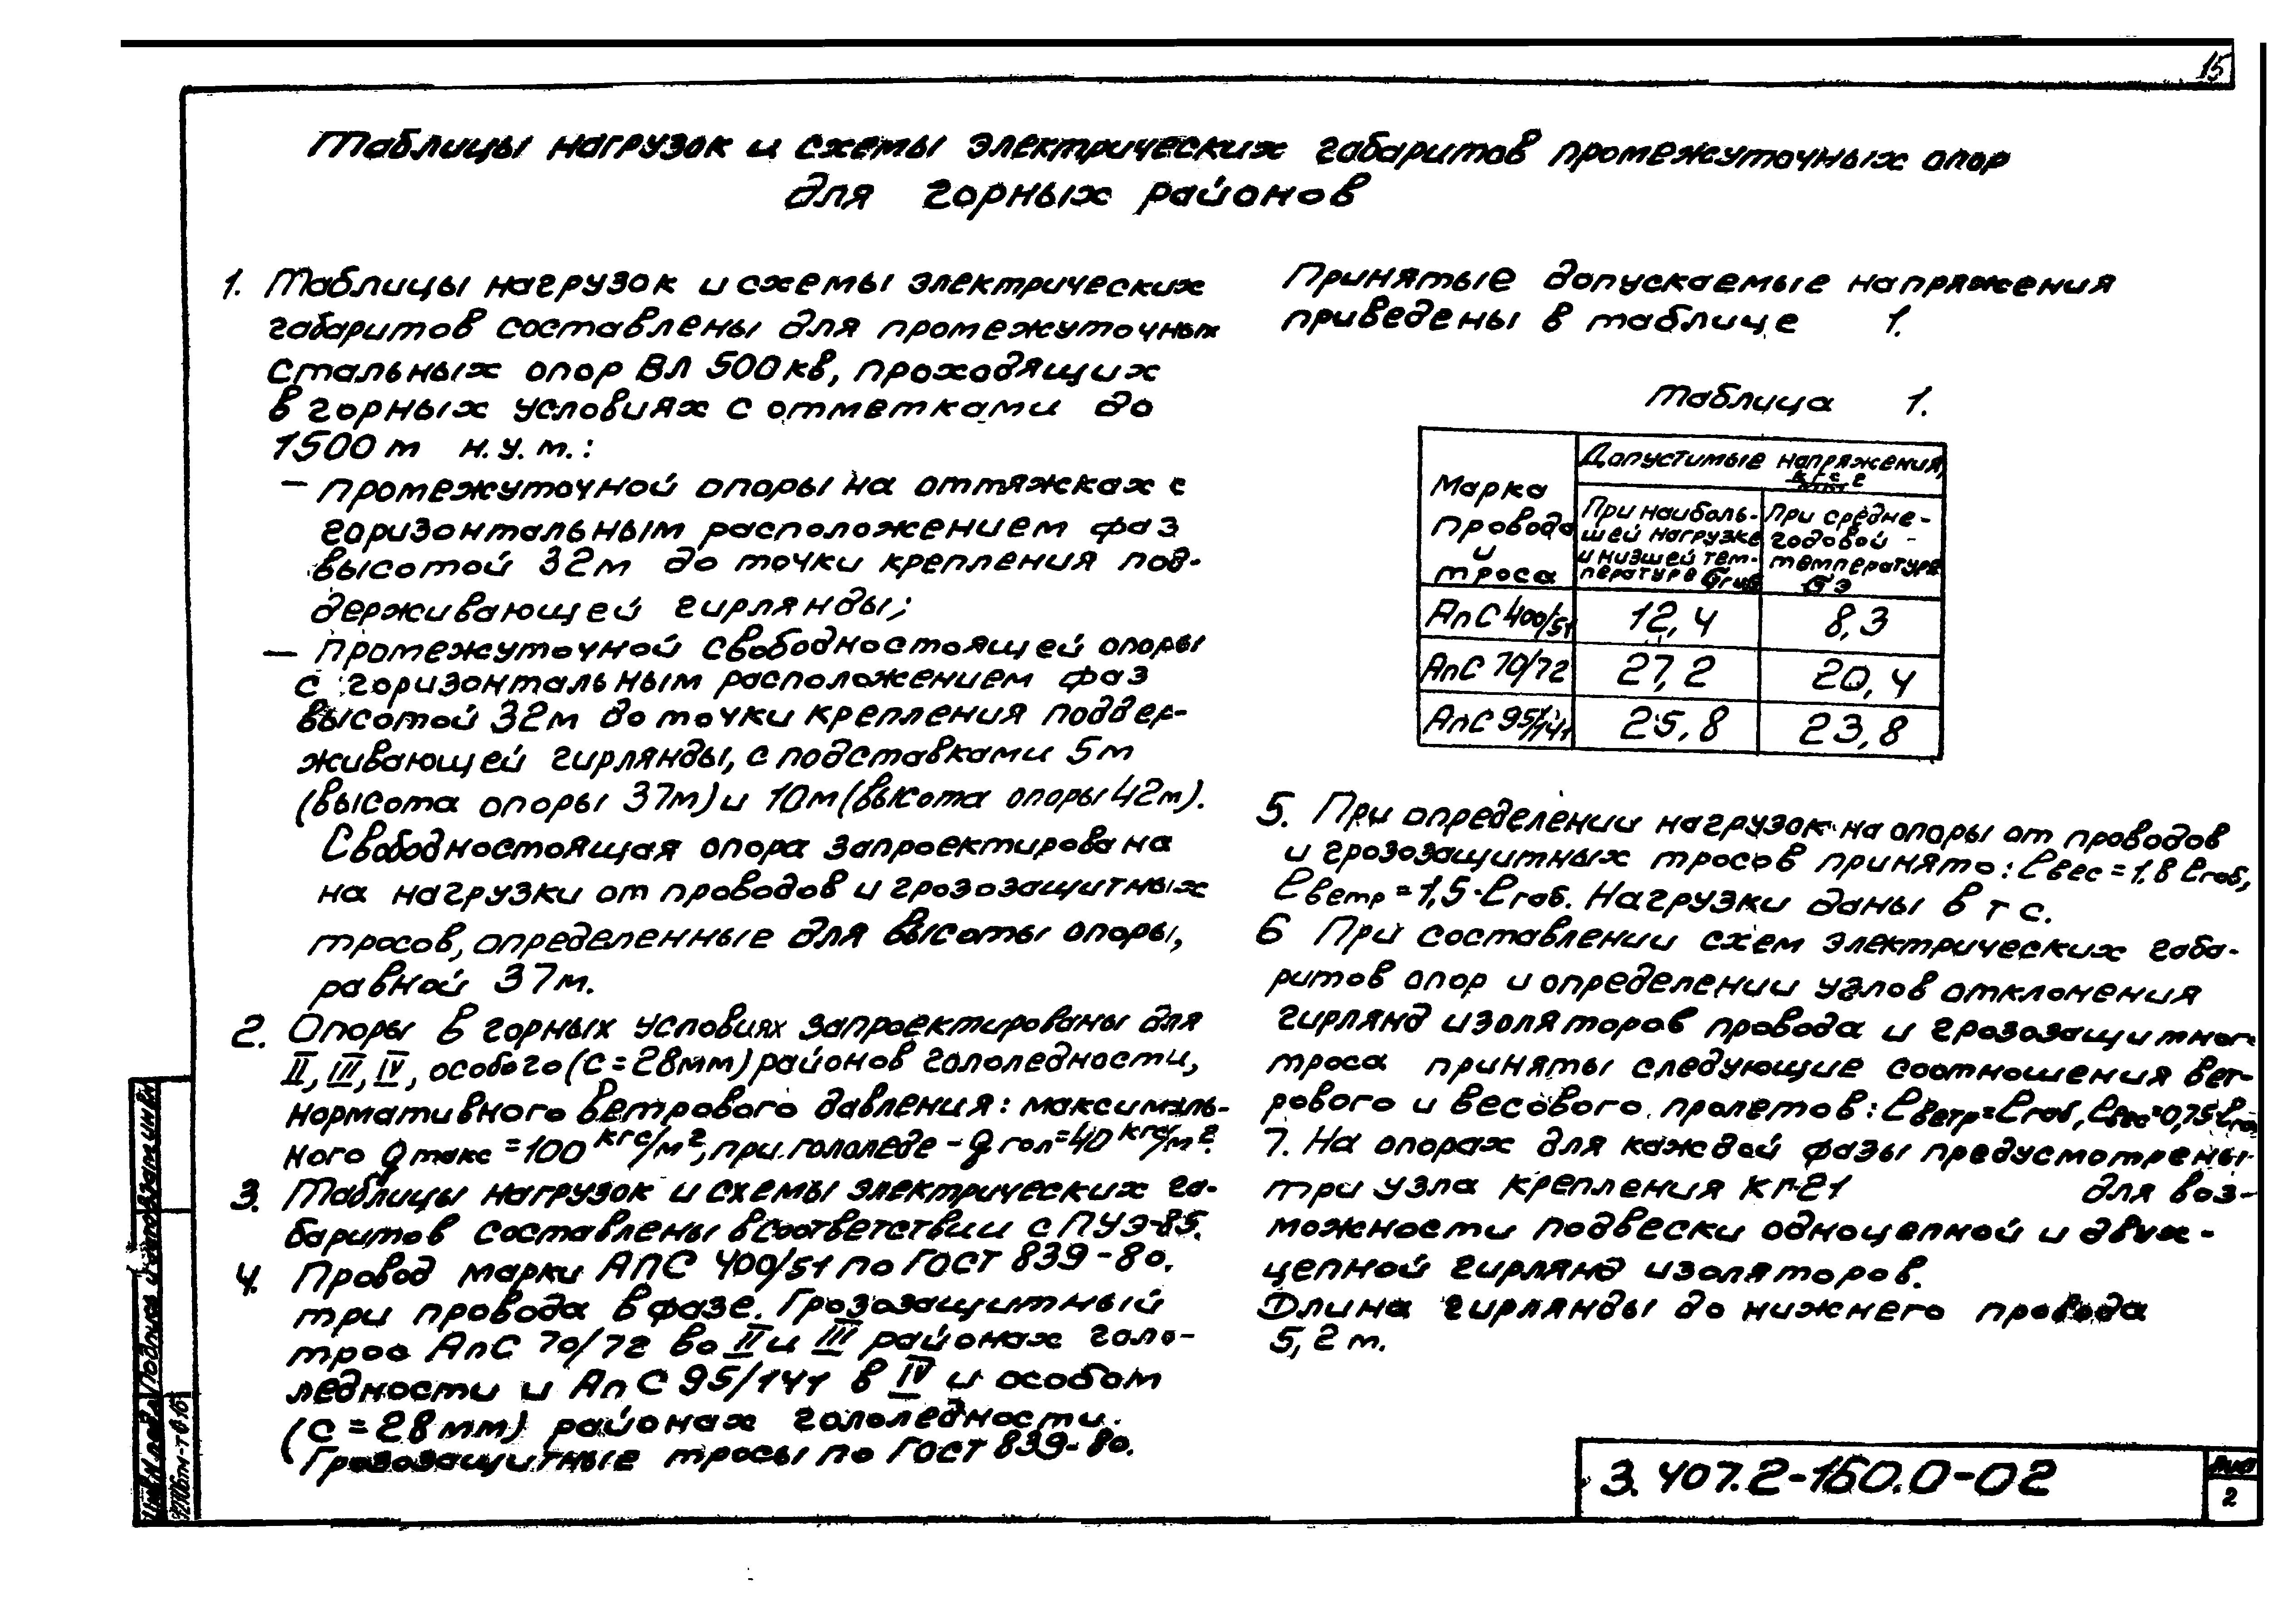 15
Таблицы нагрузок и схемы электрических габаритов промежуточных опор
для горных районов
1. Таблицы нагрузок и схемы электрических
габаритов составлены для промежуточных
стальных опор ВЛ 500 кв, проходящих
в горных условиях с отметками до
1500 м н.у.м.:
— промежуточной опоры на оттяжках с
горизонтальным расположением фаз
высотой 32м до точки крепления под-
держивающей гирлянды;
— промежуточной свободностоящей опоры
с горизонтальным расположением фаз
высотой 32м до точки крепления поддер-
живающей гирлянды, с подставками 5м
(высота опоры 37м) и 10м (высота опоры 42м).
Свободностоящая опора запроектирована
на нагрузки от проводов и грозозащитных
тросов, определенные для высоты опоры,
равной 37м.
2. Опоры в горных условиях запроектированы для
II, III, IV, особого (с = 28мм) районов гололедности,
нормативного ветрового давления: максималь-
ного q макс = 100 кгс/м², при гололеде - q гол = 40 кгс/м².
3. Таблицы нагрузок и схемы электрических га-
баритов составлены в соответствии с ПУЭ-85.
4. Провод марки АпС 400/51 по ГОСТ 839-80.
три провода в фазе. Грозозащитный
трос АпС 70/72 во II и III районах голо-
ледности и АпС 95/141 в IV и особом
(с = 28 мм) районах гололедности.
Грозозащитные тросы по ГОСТ 839-80.
Принятые допускаемые напряжения
приведены в таблице 1.
Таблица 1.
Марка провода и троса
Допустимые напряжения,
При наиболь-
шей нагрузке
и низшей тем-
пературе
При средне-
годовой
температуре
σэ
АпС 400/51 12,4 8,3
АпС 70/72 27,2 20,4
АпС 95/141 25,8 23,8
5. При определении нагрузок на опоры от проводов
и грозозащитных тросов принято: ℓвес = 1.8 ℓгаб,
ℓветр = 1,5·ℓгаб. Нагрузки даны в тс.
6 При составлении схем электрических габа-
ритов опор и определении углов отклонения
гирлянд изоляторов провода и грозозащитного
троса приняты следующие соотношения вет-
рового и весового пролетов: ℓветр=ℓгаб, ℓвес=0,75ℓгаб
7. На опорах для каждой фазы предусмотрены
три узла крепления КГ-21 для воз-
можности подвески одноцепной и двух-
цепной гирлянд изоляторов.
Длина гирлянды до нижнего провода
5,2 м.
3.407.2-160.0-02
Лист
2